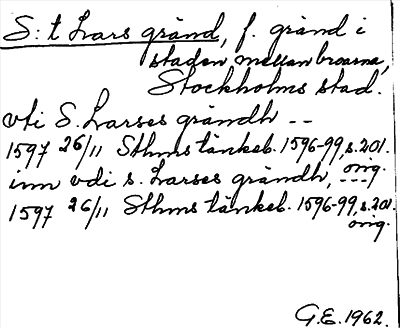 S:t Lars gränd, f. gränd i
staden mellan broarna,
Stockholms stad.
vti S. Larses grändh --
1597 26/11 Sthms tänkeb. 1596-99, s. 201.
orig.
inn vdi s. Larses grändh, ---
1597 26/11 Sthms tänkeb. 1596-99, s. 201.
orig.
G.E. 1962.